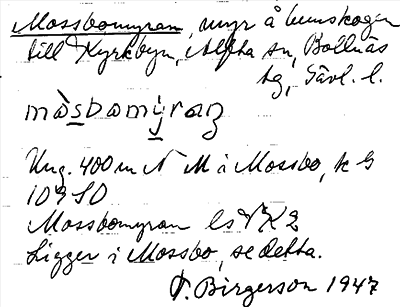 Mossbomyran, myr å hemskogen
till Kyrkbyn, Alfta sn, Bollnäs
tg, Gävl. l.
måsbomyran
Ung. 400 m N M i Mossbo, k G
109 SO
Mossbomyran ls VK2
Ligger i Mossbo, se detta.
Birgerson 1947